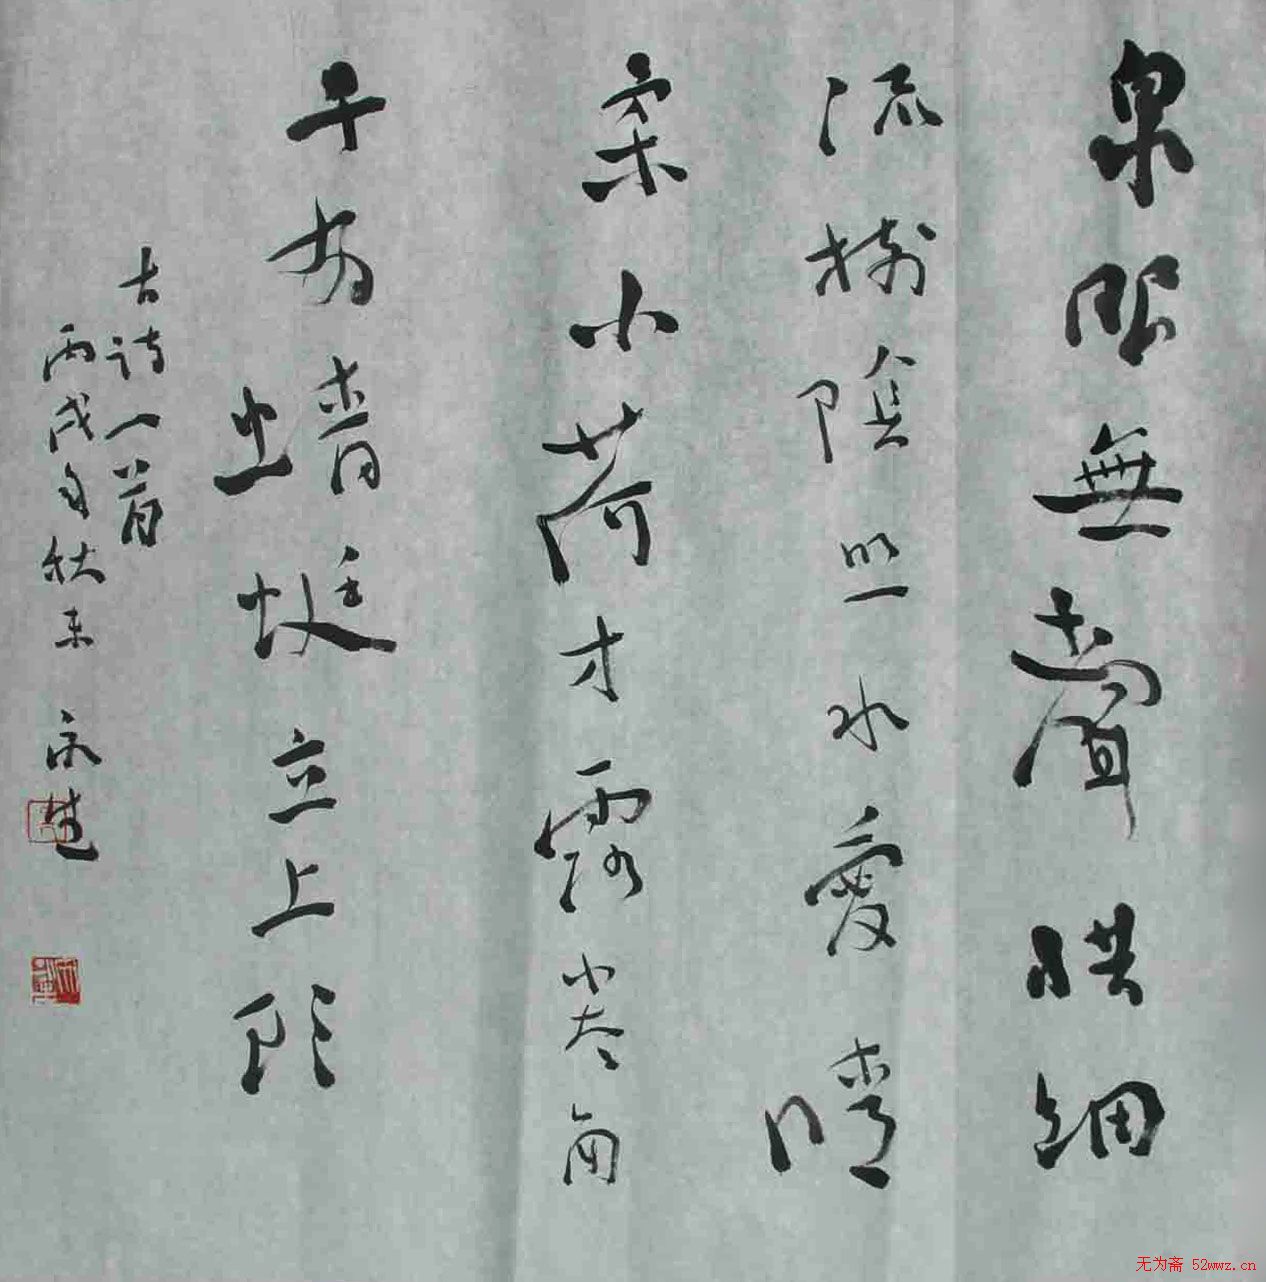 泉眼無聲惜細
流樹陰照水愛晴
柔小荷才露尖々角
早有蜻蜓立上頭
古詩一首
丙戌秋末
无为斋 52wwz.cn